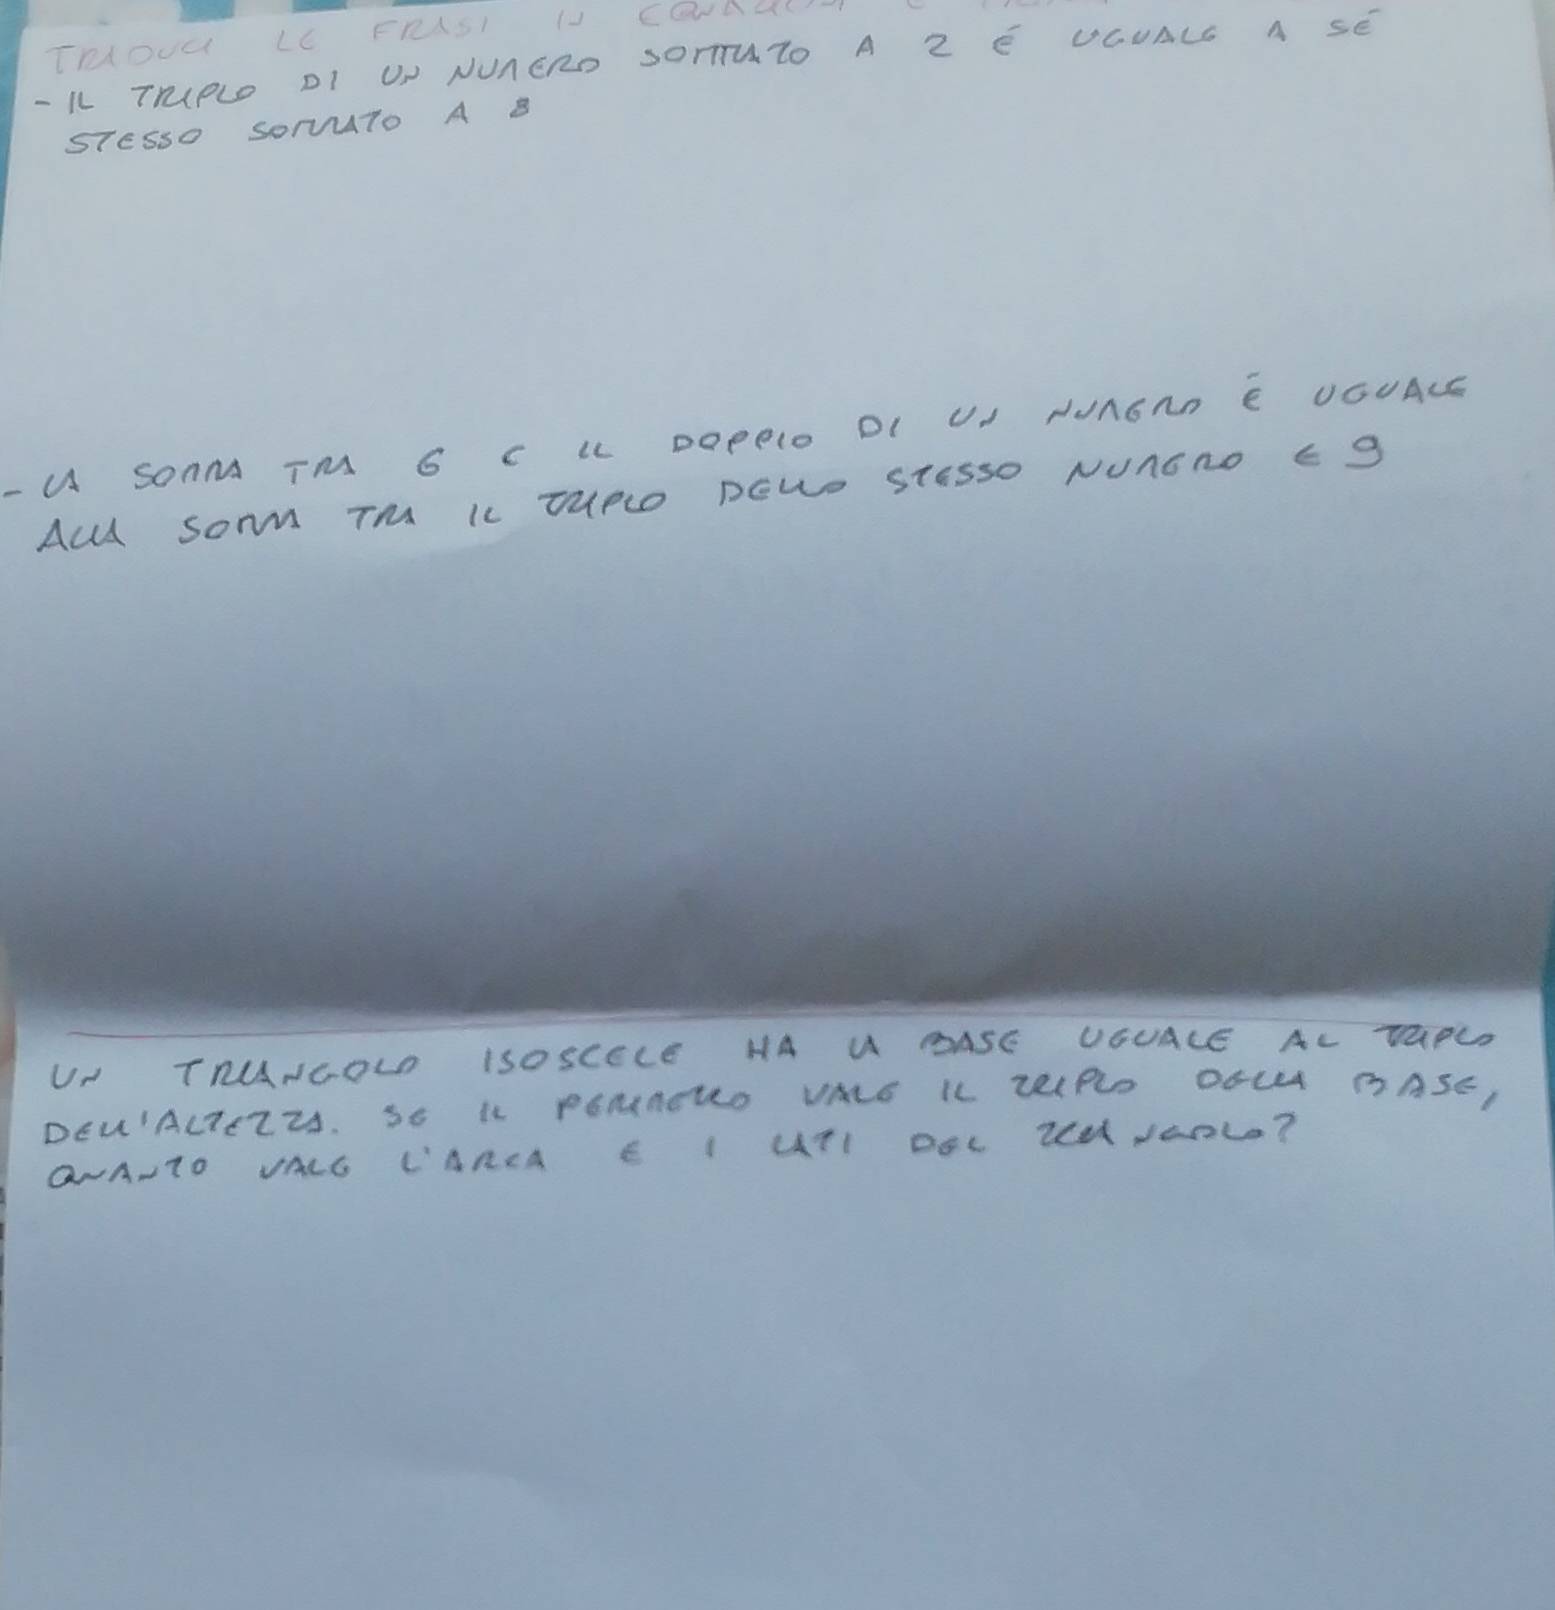 TRADUCI LE FRASI IN
- IL TRIPLO DI UN NUMERO SOMMATO A 2 É UGUALE A SÉ
STESSO SOMMATO A 8
- LA SOMMA TRA 6 E IL DOPPIO DI UN NUMERO É UGUALE
ALLA SOMMA TRA IL TRIPLO DELLO STESSO NUMERO E 9
UN TRIANGOLO ISOSCELE HA LA BASE UGUALE AL TRIPLO
DELL'ALTEZZA. SE IL PERIMETRO VALE IL TRIPLO DELLA BASE,
QUANTO VALE L'AREA E I LATI DEL TRIANGOLO?